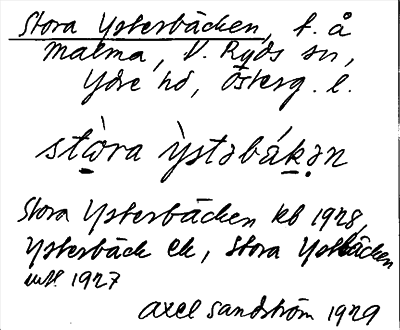 Stora Ysterbäcken, t. å
Malma, V. Ryds sn,
Ydre hd, Österg. l.
stòra ỳstəbákən
Stora Ysterbäcken kb 1928,
Ysterbäck ek, Stora Ystbäcken
1927
Axel Sandström 1929